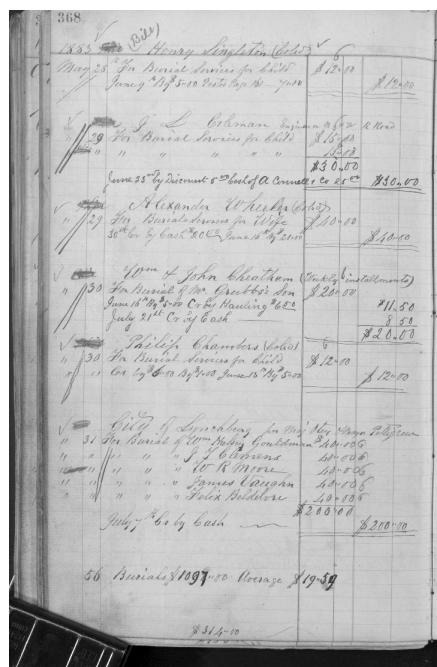 368
(Bill)
1883 Henry Singleton (Col'd) 6
May 25 For Burial Services for Child $12-00
June 9th By $5-00 Page 7-00 $12-00
J. L. Coleman R Road
" 29 For Burial Services for Child $15-00
" " " " " " 15-00
$30-00
June 23rd By Discount 5 A Connell & Co 25 $30-00
Alexander Wheeler (Col'd)
" 29 For Burial Services for Wife $40-00
30th Cr By Cash June 16th By 21-00 $40-00
Wm & John Cheatham (Weekly installments)
" 30 For Burial of Mr Grubbs's Son $20-00
June 16th By 5-00 Cr by Hauling $6 50 $11.50
July 21st Cr by Cash 8 50
$20-00
Philip Chambers (Col'd) 6
" 30 For Burial Services for Child $12-00
Cor By 6-00 By 1-00 June 13th By 5-00 $12-00
City of Lynchburg
" 31 For Burial of Wm Henry Gouldman $40-00
" " " " " J. J. Clemens 40-00
" " " " " W R Moore 40-00
" " " " " James Vaughn 40-00
" " " " " Felix 40-00
$200-00
July 7th Cr by Cash $200-00
56 Burials $1097-00 Average $19-59
$314-00